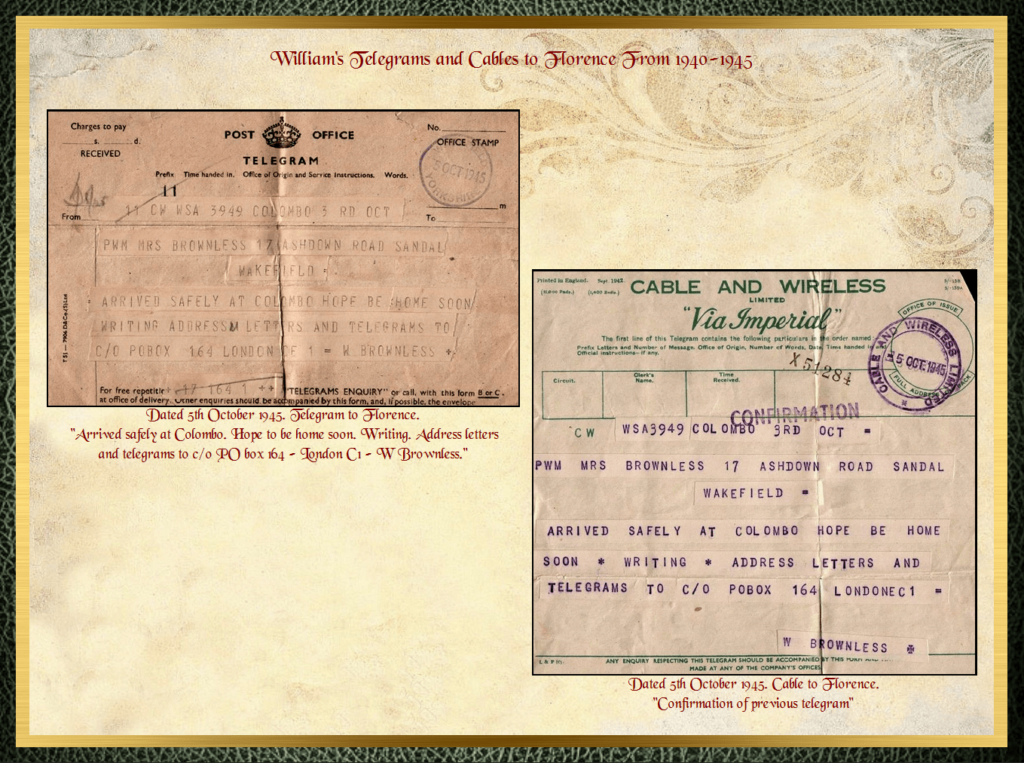 William's Telegrams and Cables to Florence From 1940-1945
Charges to pay
s. d.
RECEIVED
POST OFFICE
TELEGRAM
No.
OFFICE STAMP
5 OCT 1945
Prefix Time handed in. Office of Origin and Service Instructions. Words.
11
m
From
11 CW WSA 3949 COLOMBO 3 RD OCT
To
PWM MRS BROWNLESS 17 ASHDOWN ROAD SANDAL
WAKEFIELD =
ARRIVED SAFELY AT COLOMBO HOPE BE HOME SOON
WRITING ADDRESS LETTERS AND TELEGRAMS TO
C/O POBOX 164 LONDON EC 1 = W BROWNLESS +
17 164 1 ++
For free repetition "TELEGRAMS ENQUIRY" or call, with this form B or C.
at office of delivery. Other enquiries should be accompanied by this form, and, if possible, the envelope
Dated 5th October 1945. Telegram to Florence.
"Arrived safely at Colombo. Hope to be home soon. Writing. Address letters
and telegrams to c/o PO box 164 - London C1 - W Brownless."
Printed in England. Sept. 1942.
CABLE AND WIRELESS
LIMITED
"Via Imperial"
The first line of this Telegram contains the following particulars in the order named
Prefix Letters and Number of Message, Office of Origin, Number of Words, Date, Time handed in
Official instructions—if any.
OFFICE OF ISSUE
CABLE AND WIRELESS LIMITED
5 OCT. 1945
FULL ADDRESS
X51284
Circuit.
Clerk's
Name.
Time
Received.
CONFIRMATION
CW WSA3949 COLOMBO 3RD OCT =
PWM MRS BROWNLESS 17 ASHDOWN ROAD SANDAL
WAKEFIELD =
ARRIVED SAFELY AT COLOMBO HOPE BE HOME
SOON * WRITING * ADDRESS LETTERS AND
TELEGRAMS TO C/O POBOX 164 LONDONEC1 =
W BROWNLESS
ANY ENQUIRY RESPECTING THIS TELEGRAM SHOULD BE ACCOMPANIED BY THIS FORM
MADE AT ANY OF THE COMPANY'S OFFICES
Dated 5th October 1945. Cable to Florence.
"Confirmation of previous telegram"